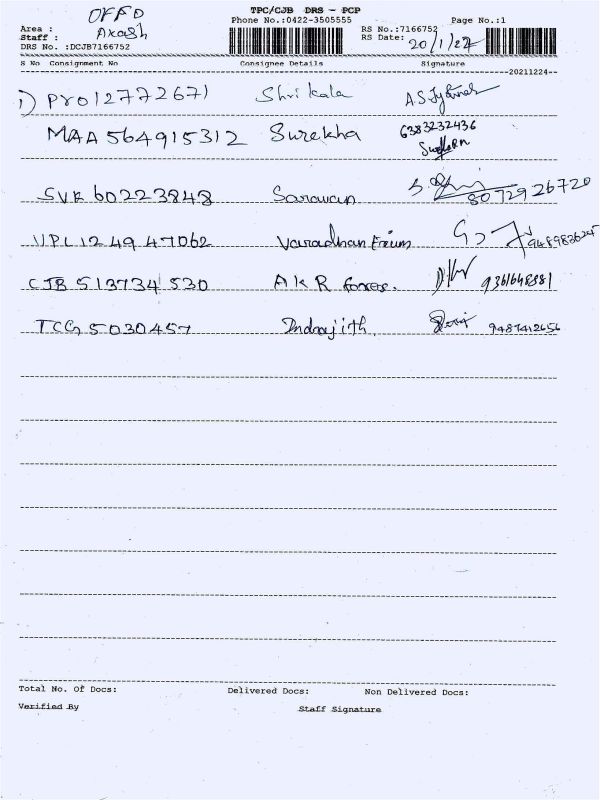 TPC/CJB DRS - PCP
Phone No.:0422-3505555 Page No.:1
Area : OFFO
Staff : Akash
RS No.:7166752
RS Date: 20/1/22
DRS No. :DCJB7166752
S No Consignment No Consignee Details Signature
20211224
1) PYO12772671 Shri kala A.S.
MAA 564915312 Surekha 6383232436
SVR 60223848 Saravan S. 8072926720
VPL1249 47062 Varadhan 9489836245
CJB 513734 530 A K R 9361648381
TCG 5030457 Indrajith. 9487412656
Total No. Of Docs: Delivered Docs: Non Delivered Docs:
Verified By Staff Signature